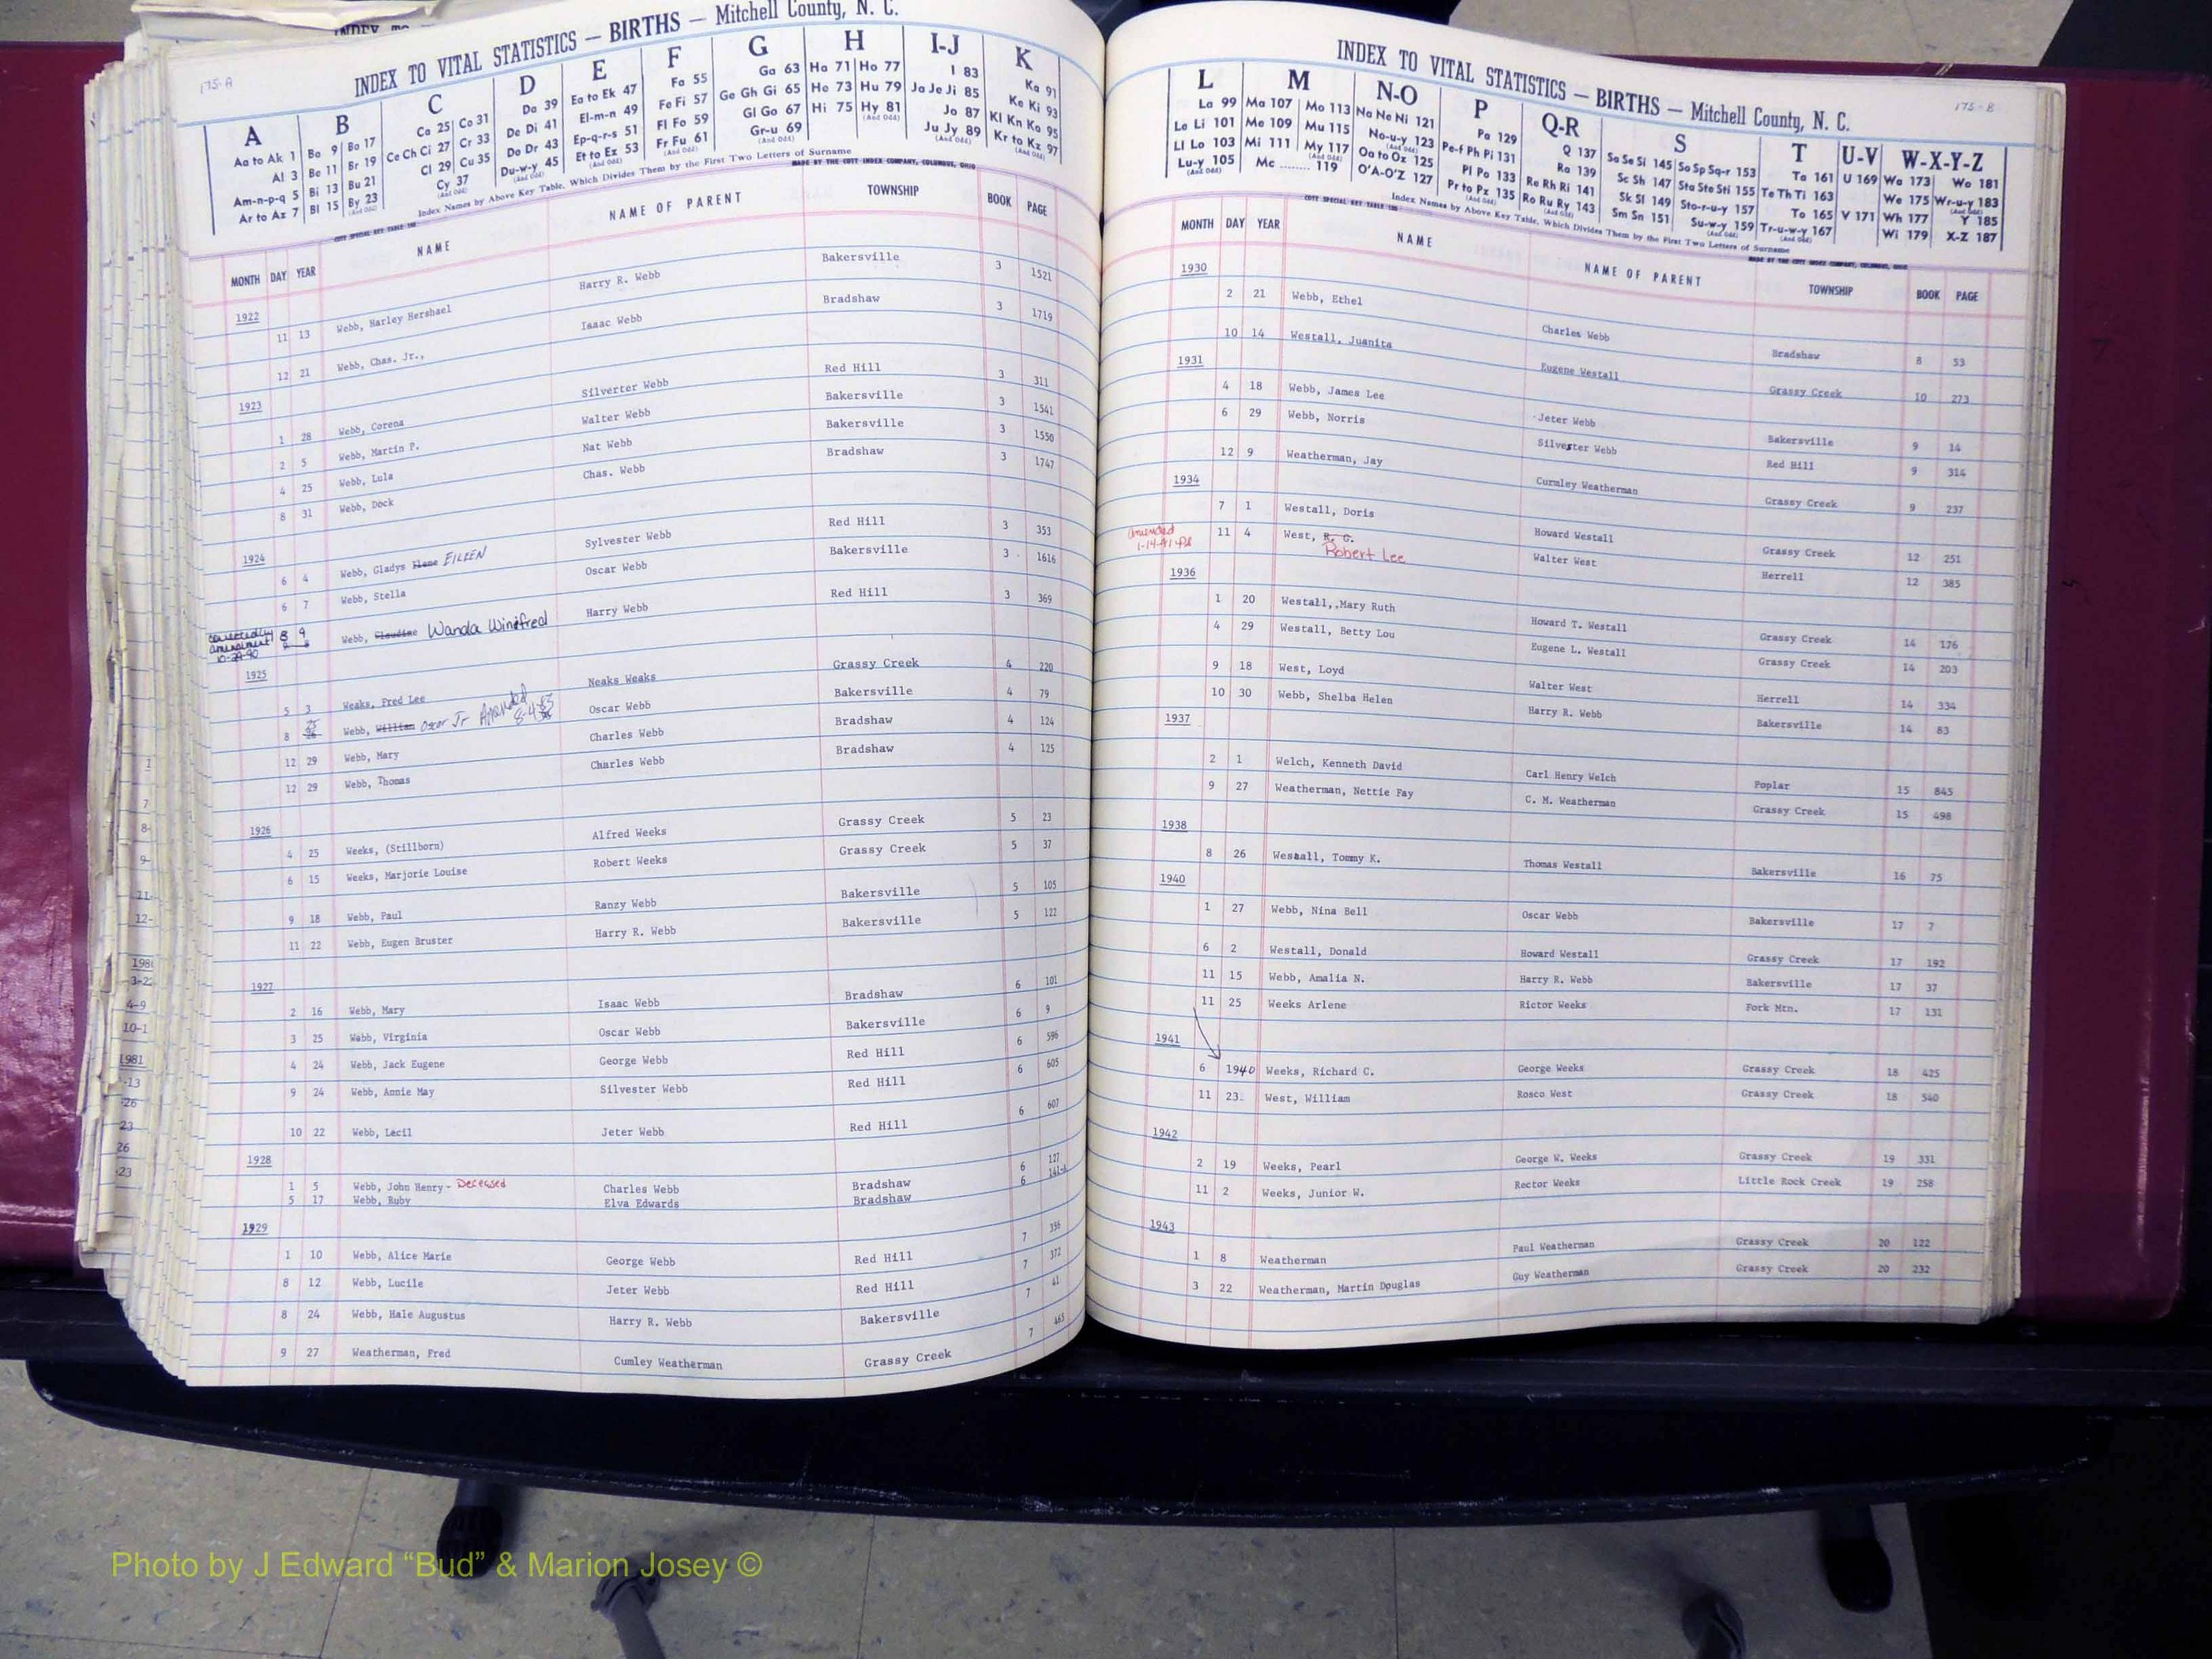 175-A
INDEX TO VITAL STATISTICS — BIRTHS — Mitchell County, N. C.
A B C D E F G H I-J K
Aa to Ak 1 Ba 9 Bo 17 Ca 25 Co 31 Da 39 Ea to Ek 47 Fa 55 Ga 63 Ha 71 Ho 77 I 83 Ka 91
Al 3 Be 11 Br 19 Ce Ch Ci 27 Cr 33 De Di 41 El-m-n 49 Fe Fi 57 Ge Gh Gi 65 He 73 Hu 79 Ja Je Ji 85 Ke Ki 93
Am-n-p-q 5 Bi 13 Bu 21 Cl 29 Cu 35 Do Dr 43 Ep-q-r-s 51 Fl Fo 59 Gl Go 67 Hi 75 Hy 81 Jo 87 Kl Kn Ko 95
Ar to Az 7 Bl 15 By 23 Cy 37 Du-w-y 45 Et to Ez 53 Fr Fu 61 Gr-u 69 Ju Jy 89 Kr to Kz 97
Index Names by Above Key Table, Which Divides Them by the First Two Letters of Surname
MADE BY THE COTT INDEX COMPANY, COLUMBUS, OHIO
MONTH DAY YEAR NAME NAME OF PARENT TOWNSHIP BOOK PAGE
1922
11 13 Webb, Harley Hershael Harry R. Webb Bakersville 3 1521
12 21 Webb, Chas. Jr., Isaac Webb Bradshaw 3 1719
1923
1 28 Webb, Corena Silverter Webb Red Hill 3 311
2 5 Webb, Martin P. Walter Webb Bakersville 3 1541
4 25 Webb, Lula Nat Webb Bakersville 3 1550
8 31 Webb, Dock Chas. Webb Bradshaw 3 1747
1924
6 4 Webb, Gladys Ilene EILEEN Sylvester Webb Red Hill 3 353
6 7 Webb, Stella Oscar Webb Bakersville 3 1616
corrected by amendment 10-29-90 8 9 Webb, Claudine Wanda Winifred Harry Webb Red Hill 3 369
1925
5 3 Weaks, Fred Lee Neaks Weaks Grassy Creek 4 220
8 25 26 Webb, William Oscar Jr Amended 8-4-83 Oscar Webb Bakersville 4 79
12 29 Webb, Mary Charles Webb Bradshaw 4 124
12 29 Webb, Thomas Charles Webb Bradshaw 4 125
1926
4 25 Weeks, (Stillborn) Alfred Weeks Grassy Creek 5 23
6 15 Weeks, Marjorie Louise Robert Weeks Grassy Creek 5 37
9 18 Webb, Paul Ranzy Webb Bakersville 5 105
11 22 Webb, Eugen Bruster Harry R. Webb Bakersville 5 122
1927
2 16 Webb, Mary Isaac Webb Bradshaw 6 101
3 25 Webb, Virginia Oscar Webb Bakersville 6 9
4 24 Webb, Jack Eugene George Webb Red Hill 6 596
9 24 Webb, Annie May Silvester Webb Red Hill 6 605
10 22 Webb, Lecil Jeter Webb Red Hill 6 607
1928
1 5 Webb, John Henry - Deceased Charles Webb Bradshaw 6 127
5 17 Webb, Ruby Elva Edwards Bradshaw 6 141-A
1929
1 10 Webb, Alice Marie George Webb Red Hill 7 356
8 12 Webb, Lucile Jeter Webb Red Hill 7 372
8 24 Webb, Hale Augustus Harry R. Webb Bakersville 7 41
9 27 Weatherman, Fred Cumley Weatherman Grassy Creek 7 463
175-B
INDEX TO VITAL STATISTICS — BIRTHS — Mitchell County, N. C.
L M N-O P Q-R S T U-V W-X-Y-Z
La 99 Ma 107 Mo 113 Na Ne Ni 121 Pa 129 Q 137 Sa Se Si 145 So Sp Sq-r 153 Ta 161 U 169 Wa 173 Wo 181
Le Li 101 Me 109 Mu 115 No-u-y 123 Pe-f Ph Pi 131 Ra 139 Sc Sh 147 Sta Ste Sti 155 Te Th Ti 163 We 175 Wr-u-y 183
Ll Lo 103 Mi 111 My 117 Oa to Oz 125 Pl Po 133 Re Rh Ri 141 Sk Sl 149 Sto-r-u-y 157 To 165 V 171 Wh 177 Y 185
Lu-y 105 Mc 119 O'A-O'Z 127 Pr to Pz 135 Ro Ru Ry 143 Sm Sn 151 Su-w-y 159 Tr-u-w-y 167 Wi 179 X-Z 187
Index Names by Above Key Table, Which Divides Them by the First Two Letters of Surname
MADE BY THE COTT INDEX COMPANY, COLUMBUS, OHIO
MONTH DAY YEAR NAME NAME OF PARENT TOWNSHIP BOOK PAGE
1930
2 21 Webb, Ethel Charles Webb Bradshaw 8 53
10 14 Westall, Juanita Eugene Westall Grassy Creek 10 273
1931
4 18 Webb, James Lee Jeter Webb Bakersville 9 14
6 29 Webb, Norris Silvester Webb Red Hill 9 314
12 9 Weatherman, Jay Curmley Weatherman Grassy Creek 9 237
1934
7 1 Westall, Doris Howard Westall Grassy Creek 12 251
amended 11 4 West, R. G. Robert Lee Walter West Herrell 12 385
1936
1 20 Westall, Mary Ruth Howard T. Westall Grassy Creek 14 176
4 29 Westall, Betty Lou Eugene L. Westall Grassy Creek 14 203
9 18 West, Loyd Walter West Herrell 14 334
10 30 Webb, Shelba Helen Harry R. Webb Bakersville 14 83
1937
2 1 Welch, Kenneth David Carl Henry Welch Poplar 15 845
9 27 Weatherman, Nettie Fay C. M. Weatherman Grassy Creek 15 498
1938
8 26 Westall, Tommy K. Thomas Westall Bakersville 16 75
1940
1 27 Webb, Nina Bell Oscar Webb Bakersville 17 7
6 2 Westall, Donald Howard Westall Grassy Creek 17 192
11 15 Webb, Amalia N. Harry R. Webb Bakersville 17 37
11 25 Weeks Arlene Rictor Weeks Fork Mtn. 17 131
1941
6 1940 Weeks, Richard C. George Weeks Grassy Creek 18 425
11 23 West, William Rosco West Grassy Creek 18 540
1942
2 19 Weeks, Pearl George W. Weeks Grassy Creek 19 331
11 2 Weeks, Junior W. Rector Weeks Little Rock Creek 19 258
1943
1 8 Weatherman Paul Weatherman Grassy Creek 20 122
3 22 Weatherman, Martin Douglas Guy Weatherman Grassy Creek 20 232
Photo by J Edward “Bud” & Marion Josey ©